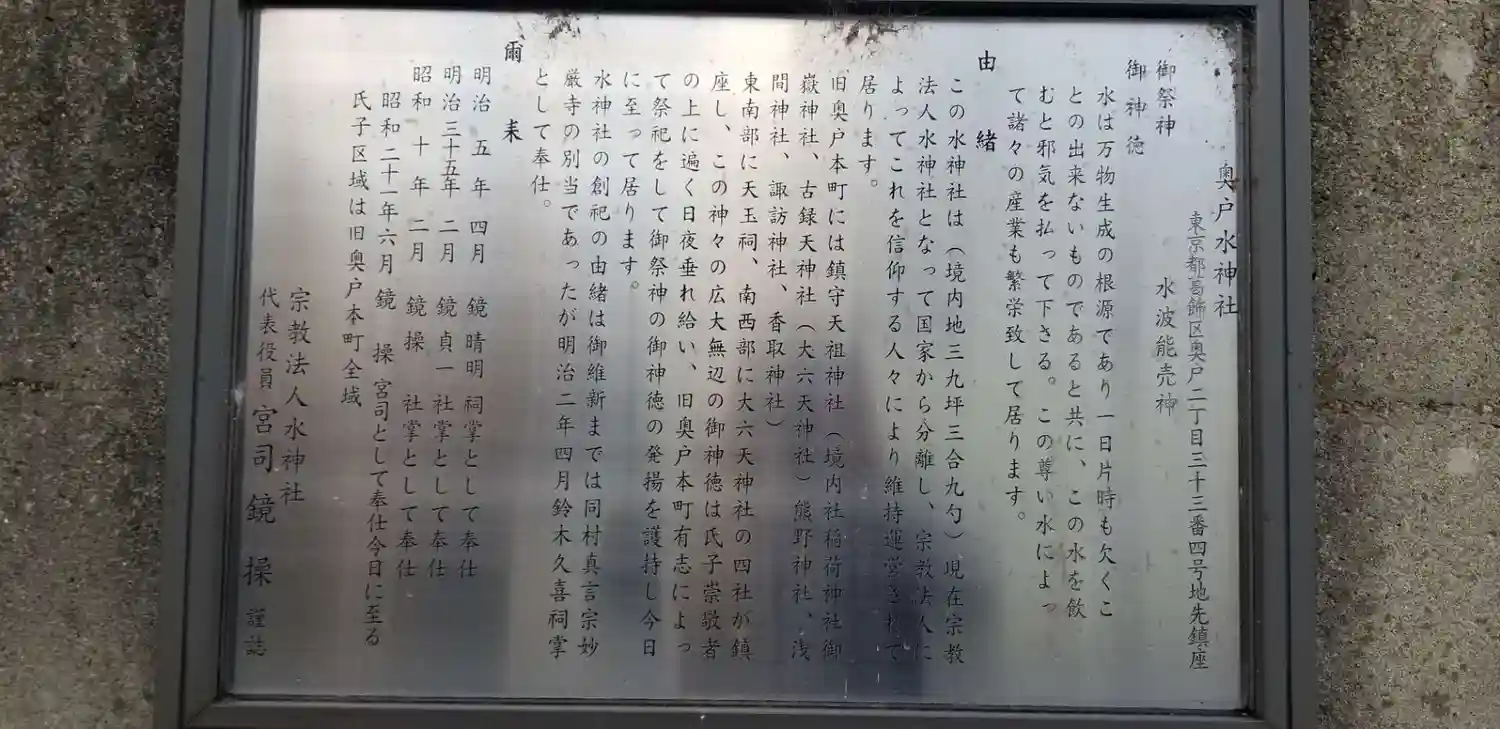 奥戸水神社
東京都葛飾区奥戸二丁目三十三番四号地先鎮座
御祭神　水波能売神
御神徳
水は万物生成の根源であり一日片時も欠くこ
との出来ないものであると共に、この水を飲
むと邪気を払って下さる。この尊い水によっ
て諸々の産業も繁栄致して居ります。
由緒
この水神社は（境内地三九坪三合九勺）現在宗教
法人水神社となって国家から分離し、宗教法人に
よってこれを信仰する人々により維持運営されて
居ります。
旧奥戸本町には鎮守天祖神社（境内社稲荷神社御
嶽神社、古録天神社（大六天神社）熊野神社、浅
間神社、諏訪神社、香取神社）
東南部に天玉祠、南西部に大六天神社の四社が鎮
座し、この神々の広大無辺の御神徳は氏子崇敬者
の上に遍く日夜垂れ給い、旧奥戸本町有志によっ
て祭祀をして御祭神の御神徳の発揚を護持し今日
に至って居ります。
水神社の創祀の由緒は御維新までは同村真言宗妙
厳寺の別当であったが明治二年四月鈴木久喜祠掌
として奉仕。
爾来
明治五年四月　鏡晴明　祠掌として奉仕
明治三十五年二月　鏡貞一　社掌として奉仕
昭和十年二月　鏡操　社掌として奉仕
昭和二十一年六月　鏡操　宮司として奉仕今日に至る
氏子区域は旧奥戸本町全域
宗教法人水神社
代表役員宮司鏡操謹誌